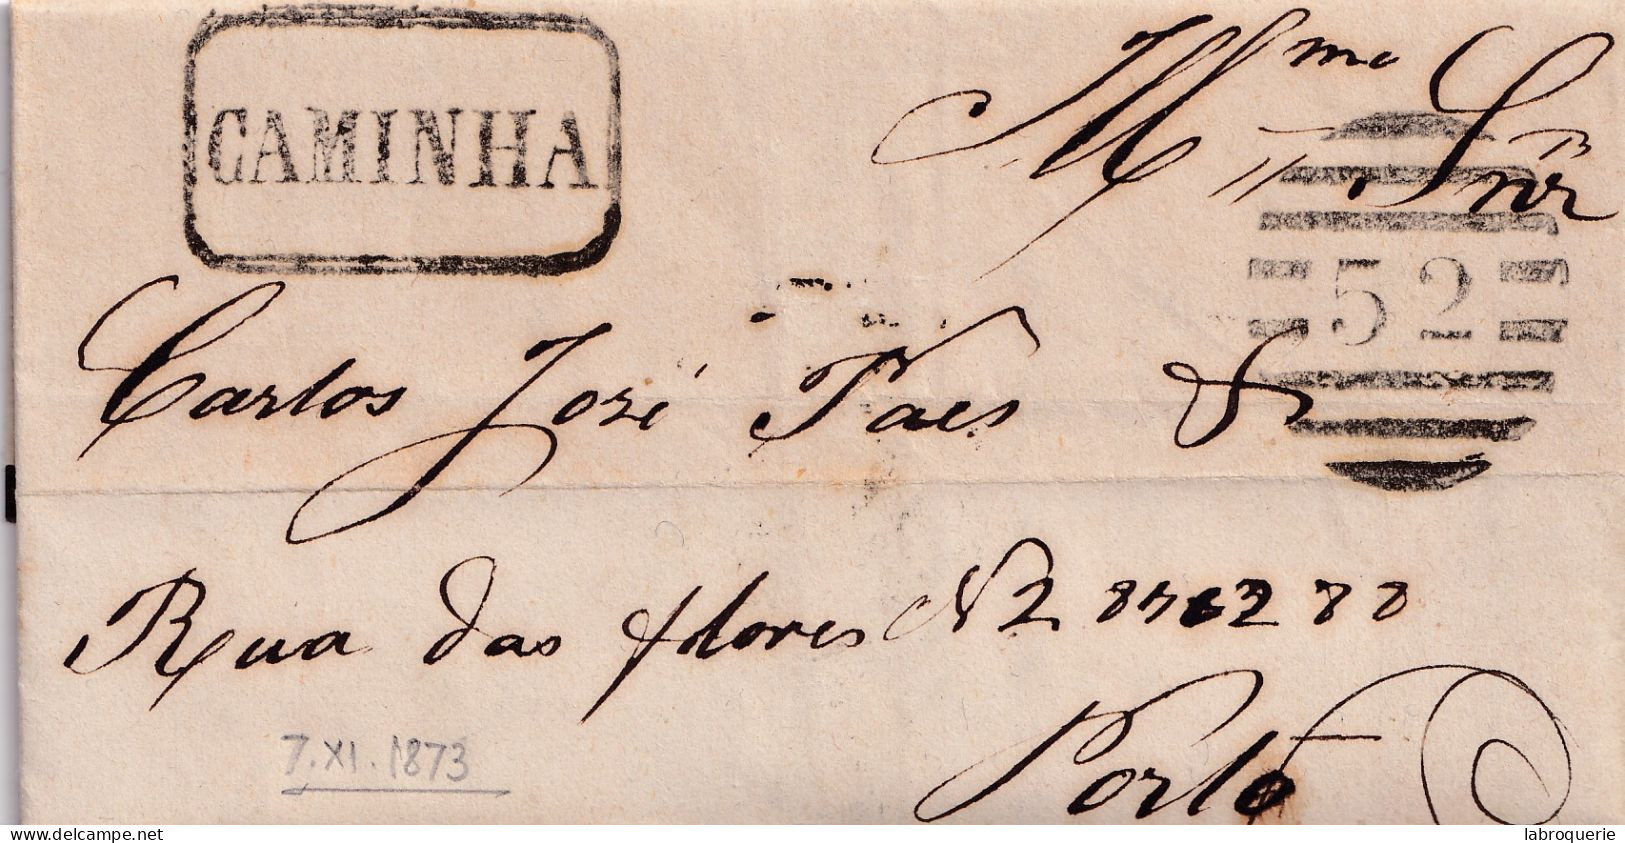 CAMINHA
Illmo Snr
52
Carlos José Paes &
Rua das flores N 287 e 288
Porto
7.XI.1873
www.delcampe.net
labroquerie